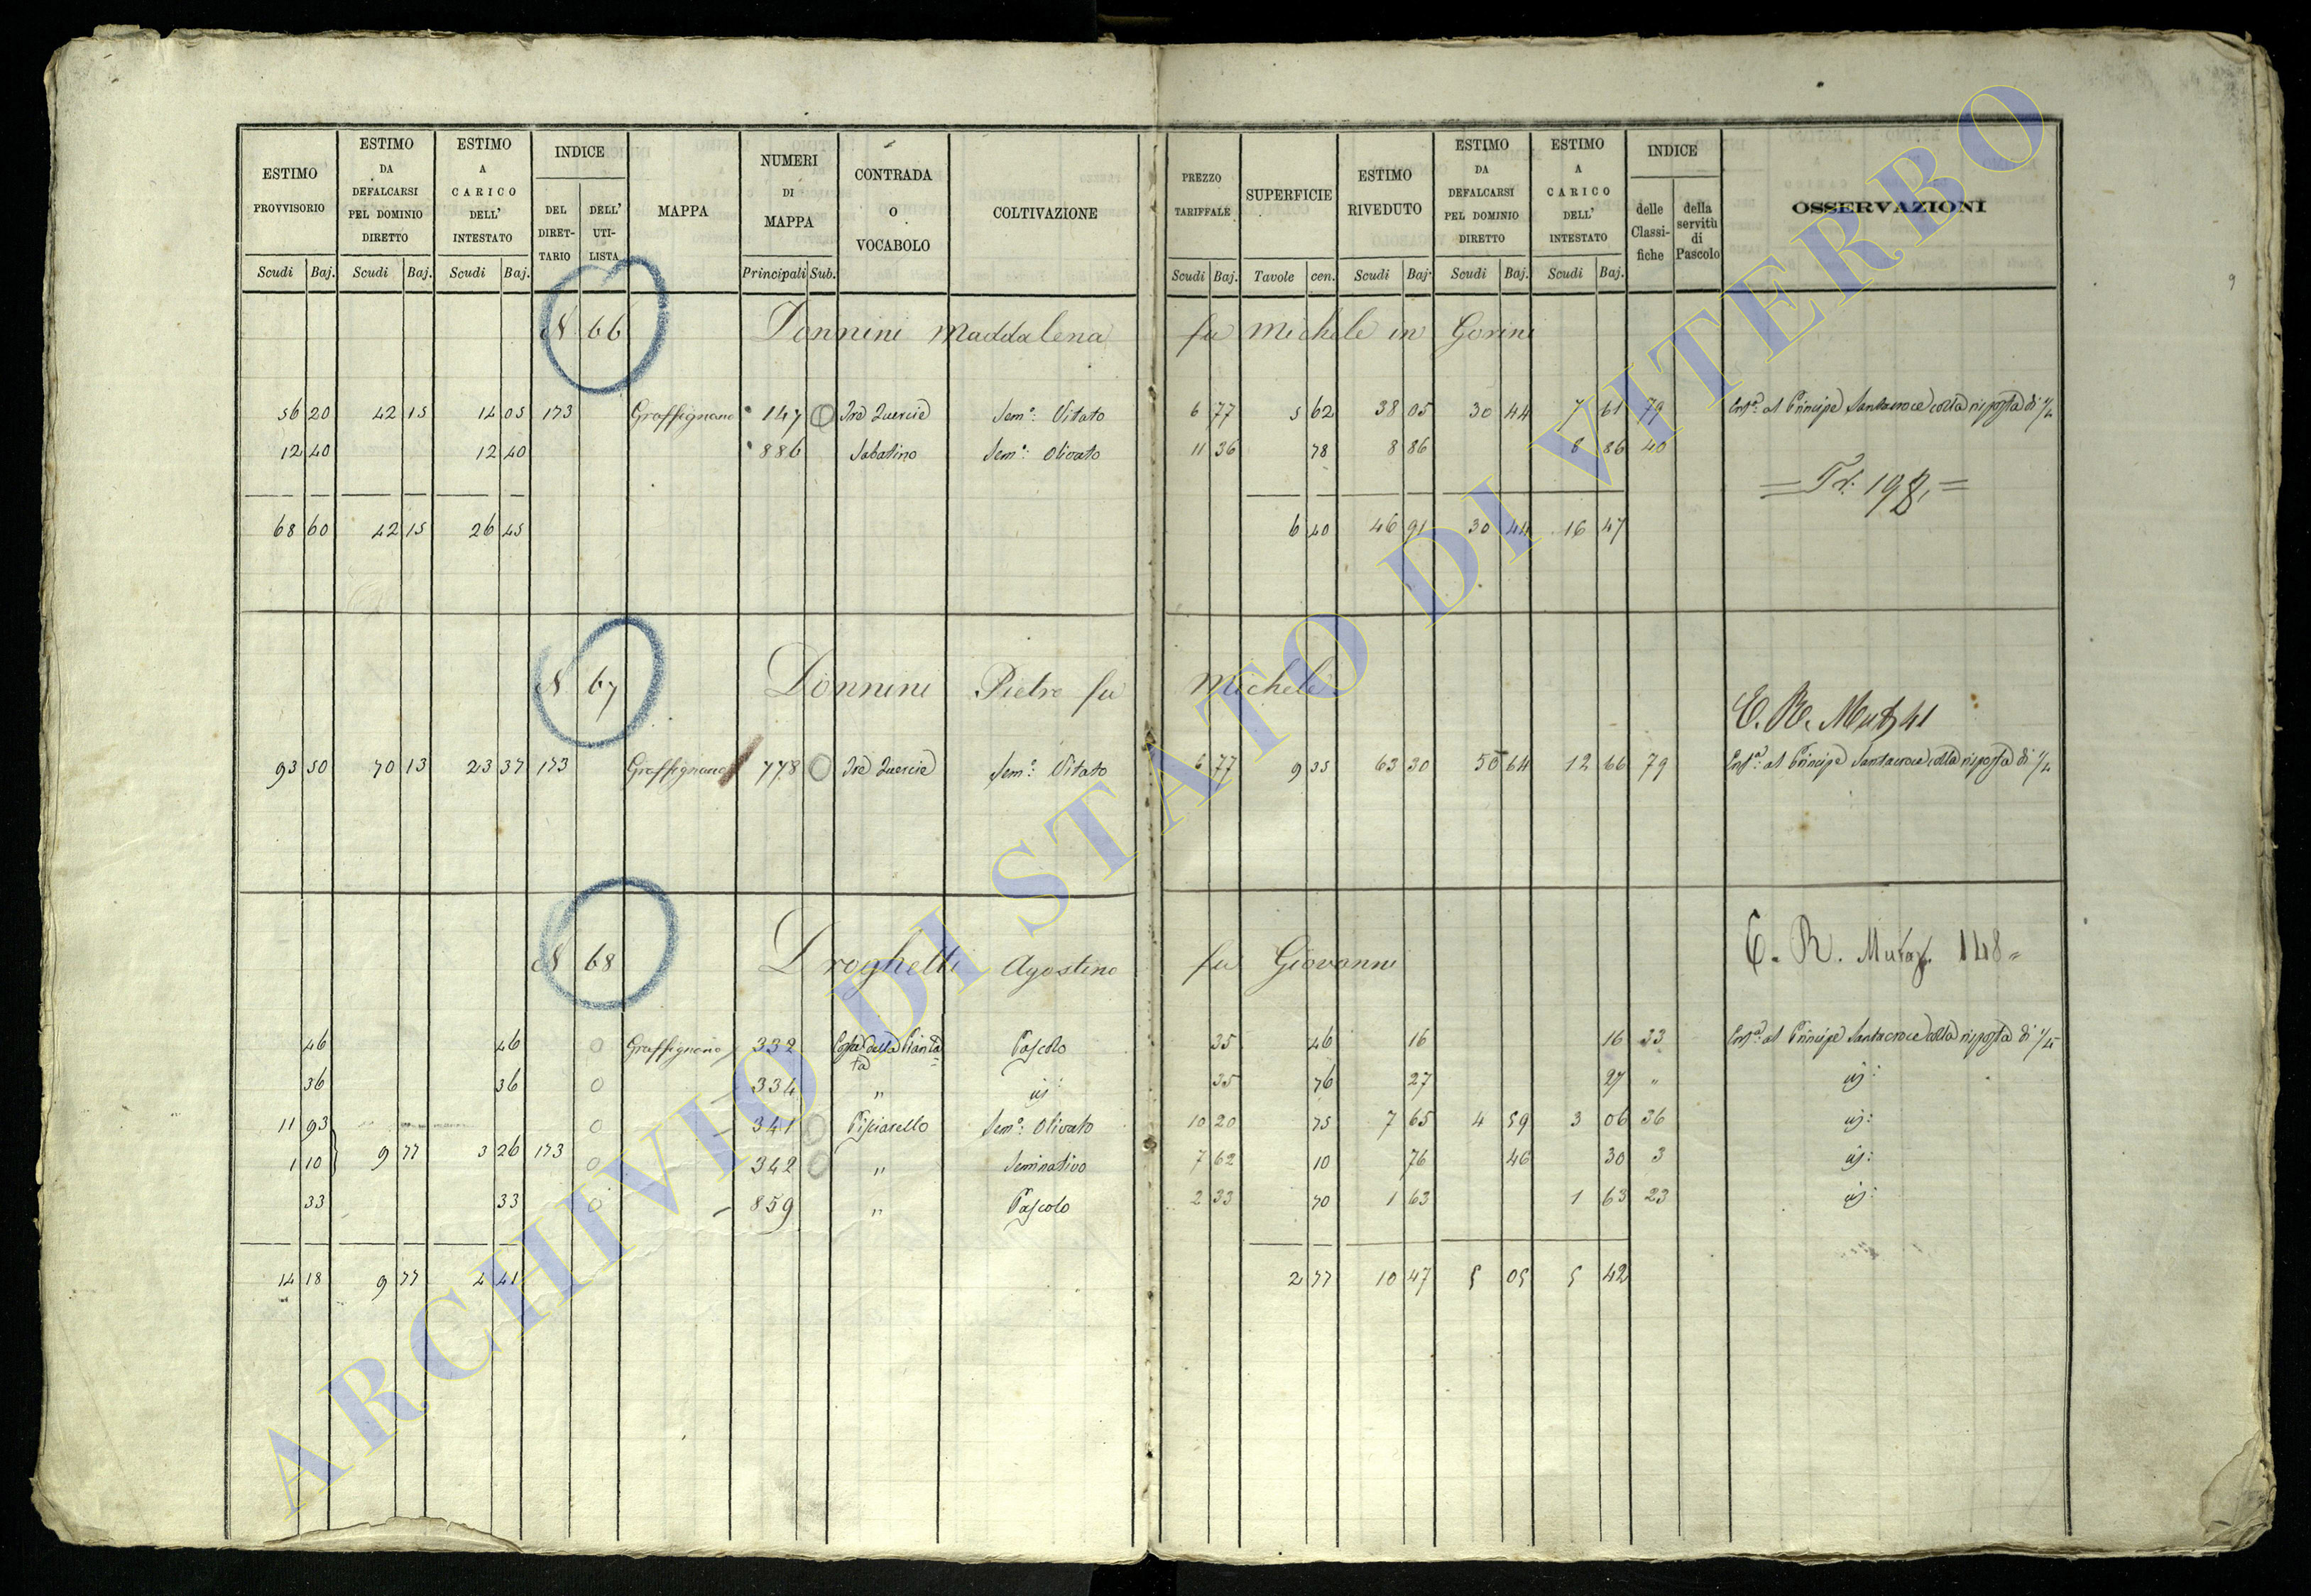 ESTIMO PROVVISORIO Scudi Baj.
ESTIMO DA DEFALCARSI PEL DOMINIO DIRETTO Scudi Baj.
ESTIMO A CARICO DELL' INTESTATO Scudi Baj.
INDICE DEL DIRET-TARIO DELL' UTI-LISTA
MAPPA
NUMERI DI MAPPA Principali Sub.
CONTRADA O VOCABOLO
COLTIVAZIONE
PREZZO TARIFFALE Scudi Baj.
SUPERFICIE Tavole cen.
ESTIMO RIVEDUTO Scudi Baj.
ESTIMO DA DEFALCARSI PEL DOMINIO DIRETTO Scudi Baj.
ESTIMO A CARICO DELL' INTESTATO Scudi Baj.
INDICE delle Classi-fiche della servitù di Pascolo
OSSERVAZIONI
9
N 66 Donnini Maddalena fu Michele in Gorini
56 20 42 15 14 05 173 Graffignano 147 Tre Quercie Sem: Vitato 6 77 5 62 38 05 30 44 7 61 79 Ent: al Principe Santacroce colla risposta di 1/4
12 40 12 40 886 Sabatino Sem: Olivato 11 36 78 8 86 8 86 40
= Tr: 198. =
68 60 42 15 26 45 6 40 46 91 30 44 16 47
N 67 Donnini Pietro fu Michele
E. R. Mut 41
93 50 70 13 23 37 173 Graffignano 778 Tre Quercie Sem: Vitato 6 77 9 35 63 30 50 64 12 66 79 Ent: al Principe Santacroce colla risposta di 1/4
N 68 Droghetti Agostino fu Giovanni
E. R. Mutaz. 148
46 46 Graffignano 332 Costa della Piantata Pascolo 35 46 16 16 33 Ent: al Principe Santacroce colla risposta di 1/4
36 36 334 " id: 35 76 27 27 " id:
11 93 341 Pisciarello Sem: Olivato 10 20 75 7 65 4 59 3 06 36 id:
1 10 9 77 3 26 173 342 " Seminativo 7 62 10 76 46 30 3 id:
33 33 859 " Pascolo 2 33 70 1 63 1 63 23 id:
14 18 9 77 4 41 2 77 10 47 5 05 5 42
ARCHIVIO DI STATO DI VITERBO